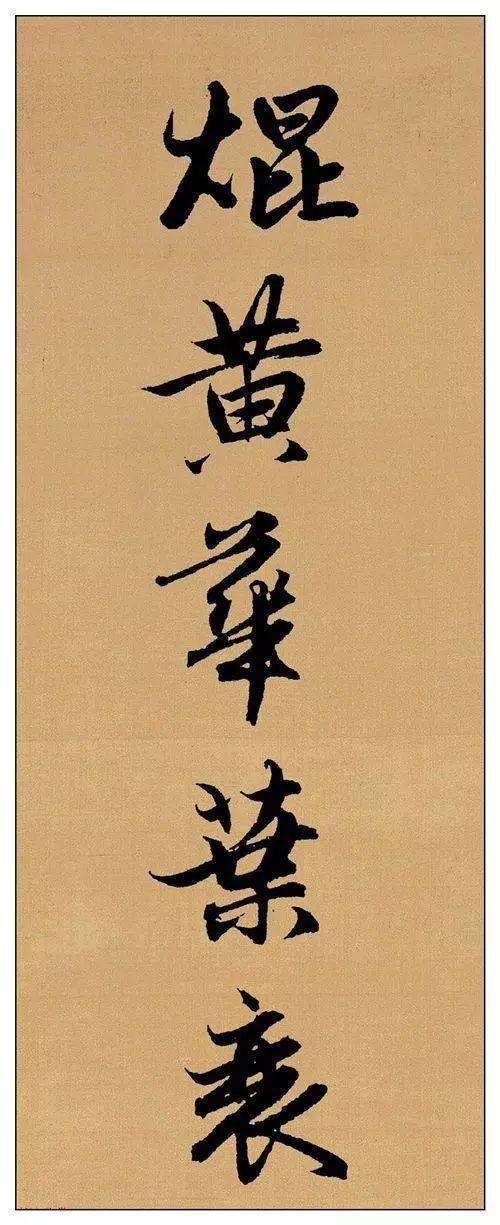 焜黄華葉衰